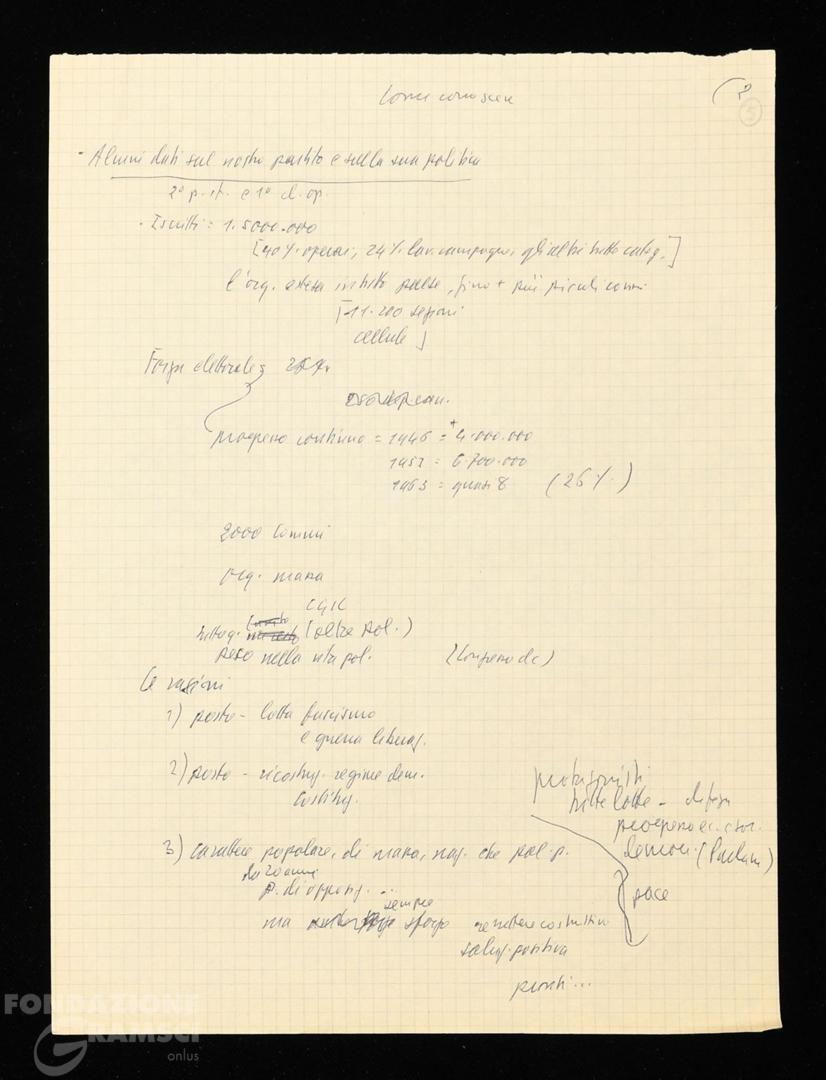 Come conoscere
(2
5
- Alcuni dati sul nostro partito e sulla sua politica
2° p. it. e 1° cl. op.
- Iscritti = 1.5000.000
[40%. operai, 24%. lav. campagne, gli altri tutte categ.]
L'org. estesa in tutto paese, fino + più piccoli comuni
[-11.200 sezioni
cellule]
Forza elettorale =
progresso continuo = 1946 = + 4.000.000
1953 = 6.700.000
1963 = quasi 8 (26%.)
2000 Comuni
Org. massa
CGIL
(altre pol.)
peso nella vita pol. (Congresso dc)
Le ragioni
1) posto - lotta fascismo
e guerra liberaz.
2) posto - ricostruz. regime dem.
Costituz.
3) carattere popolare, di massa, naz. che pol. p.
da 20 anni
p. di opposiz. ...
sempre
ma sforzo costruttivo
soluz. positiva
pronti...
protagonisti
tutte lotte - difesa
progresso ec. e soc.
democr. (Parlam)
pace
FONDAZIONE
GRAMSCI
onlus